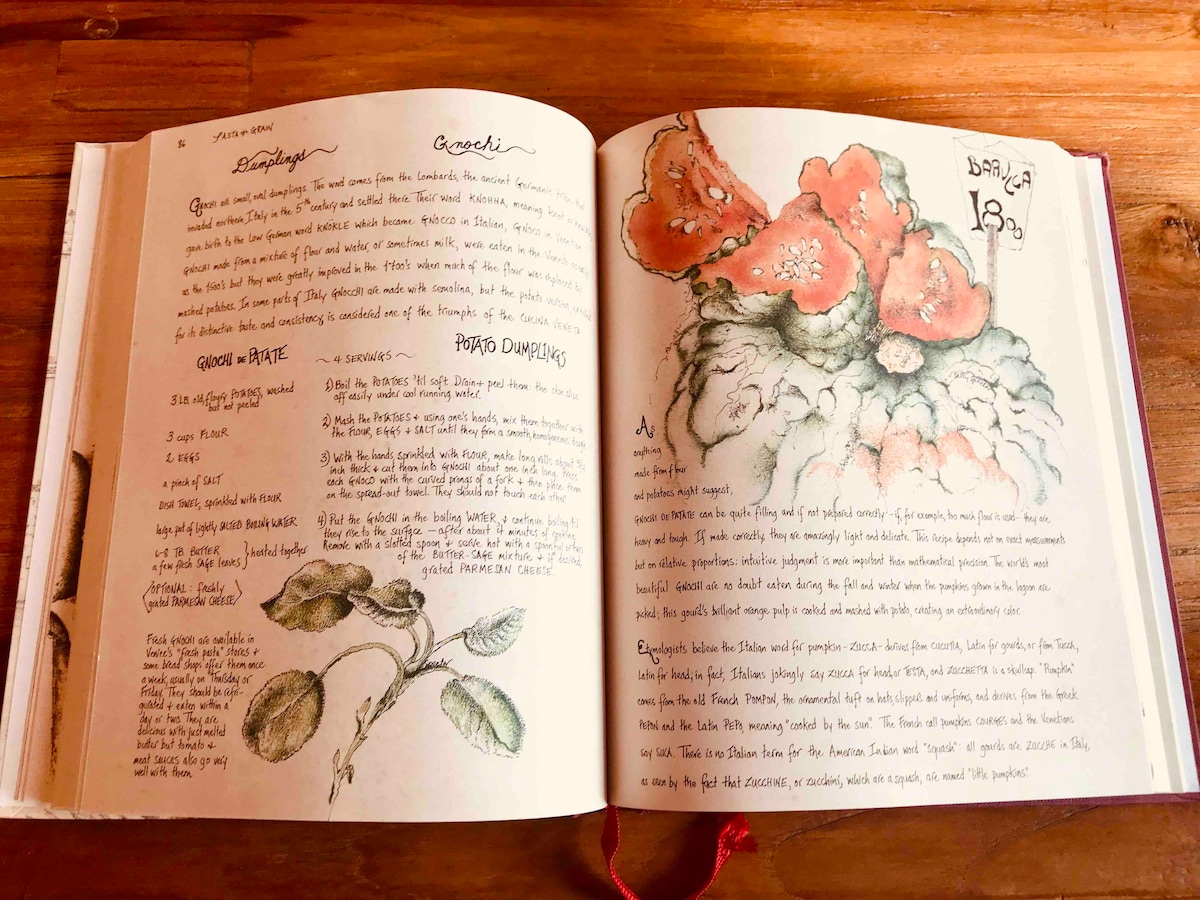 86 PASTA & GRAIN
Dumplings Gnochi
GNOCHI are small, oval dumplings. The word comes from the Lombards, the ancient Germanic tribe that
invaded northern Italy in the 5th century and settled there. Their word KNOHHA, meaning knot or knuckle,
gave birth to the Low German word KNÖKLE which became GNOCCO in Italian, GNOCO in Venetian.
GNOCHI made from a mixture of flour and water, or sometimes milk, were eaten in the Veneto as early
as the 1500's but they were greatly improved in the 1700's when much of the flour was replaced by
mashed potatoes. In some parts of Italy GNOCCHI are made with semolina, but the potato version,
for its distinctive taste and consistency, is considered one of the triumphs of the CUCINA VENETA
GNOCHI DE PATATE ~ 4 SERVINGS ~ POTATO DUMPLINGS
3 LB. old, floury POTATOES, washed
but not peeled
3 cups FLOUR
2 EGGS
a pinch of SALT
DISH TOWEL, sprinkled with FLOUR
large pot of lightly SALTED BOILING WATER
6-8 TB. BUTTER
a few fresh SAGE leaves } heated together
(OPTIONAL: freshly
grated PARMESAN CHEESE)
1) Boil the POTATOES 'til soft. Drain + peel them: the skin slips
off easily under cool running water.
2) Mash the POTATOES + using one's hands, mix them together with
the FLOUR, EGGS + SALT until they form a smooth, homogeneous dough.
3) With the hands sprinkled with FLOUR, make long rolls about 3/4
inch thick + cut them into GNOCHI about one inch long. Press
each GNOCO with the curved prongs of a fork + then place them
on the spread-out towel. They should not touch each other.
4) Put the GNOCHI in the boiling WATER, + continue boiling til
they rise to the surface — after about 4 minutes of cooking.
Remove with a slotted spoon + serve hot with a spoonful or two
of the BUTTER-SAGE mixture + if desired,
grated PARMESAN CHEESE.
Fresh GNOCHI are available in
Venice's "fresh pasta" stores +
some bread shops offer them once
a week, usually on Thursday or
Friday. They should be refri-
gerated + eaten within a
day or two. They are
delicious with just melted
butter but tomato +
meat sauces also go very
well with them.
BARUCA
1800
As
anything
made from flour
and potatoes might suggest,
GNOCHI DE PATATE can be quite filling and if not prepared correctly -if, for example, too much flour is used- they are
heavy and tough. If made correctly, they are amazingly light and delicate. This recipe depends not on exact measurements
but on relative proportions: intuitive judgment is more important than mathematical precision. The world's most
beautiful GNOCHI are no doubt eaten during the fall and winter when the pumpkins grown in the lagoon are
picked; this gourd's brilliant orange pulp is cooked and mashed with potato, creating an extraordinary color.
Etymologists believe the Italian word for pumpkin -ZUCCA- derives from CUCUTIA, Latin for gourds, or from TUCCA,
Latin for head; in fact, Italians jokingly say ZUCCA for head, or TESTA, and ZUCCHETTA is a skullcap. "Pumpkin"
comes from the old French POMPON, the ornamental tuft on hats, slippers and uniforms, and derives from the Greek
PEPON and the Latin PEPO, meaning "cooked by the sun". The French call pumpkins COURGES and the Venetians
say SUCA. There is no Italian term for the American Indian word "squash": all gourds are ZUCCHE in Italy,
as seen by the fact that ZUCCHINE, or zucchini, which are a squash, are named "little pumpkins".